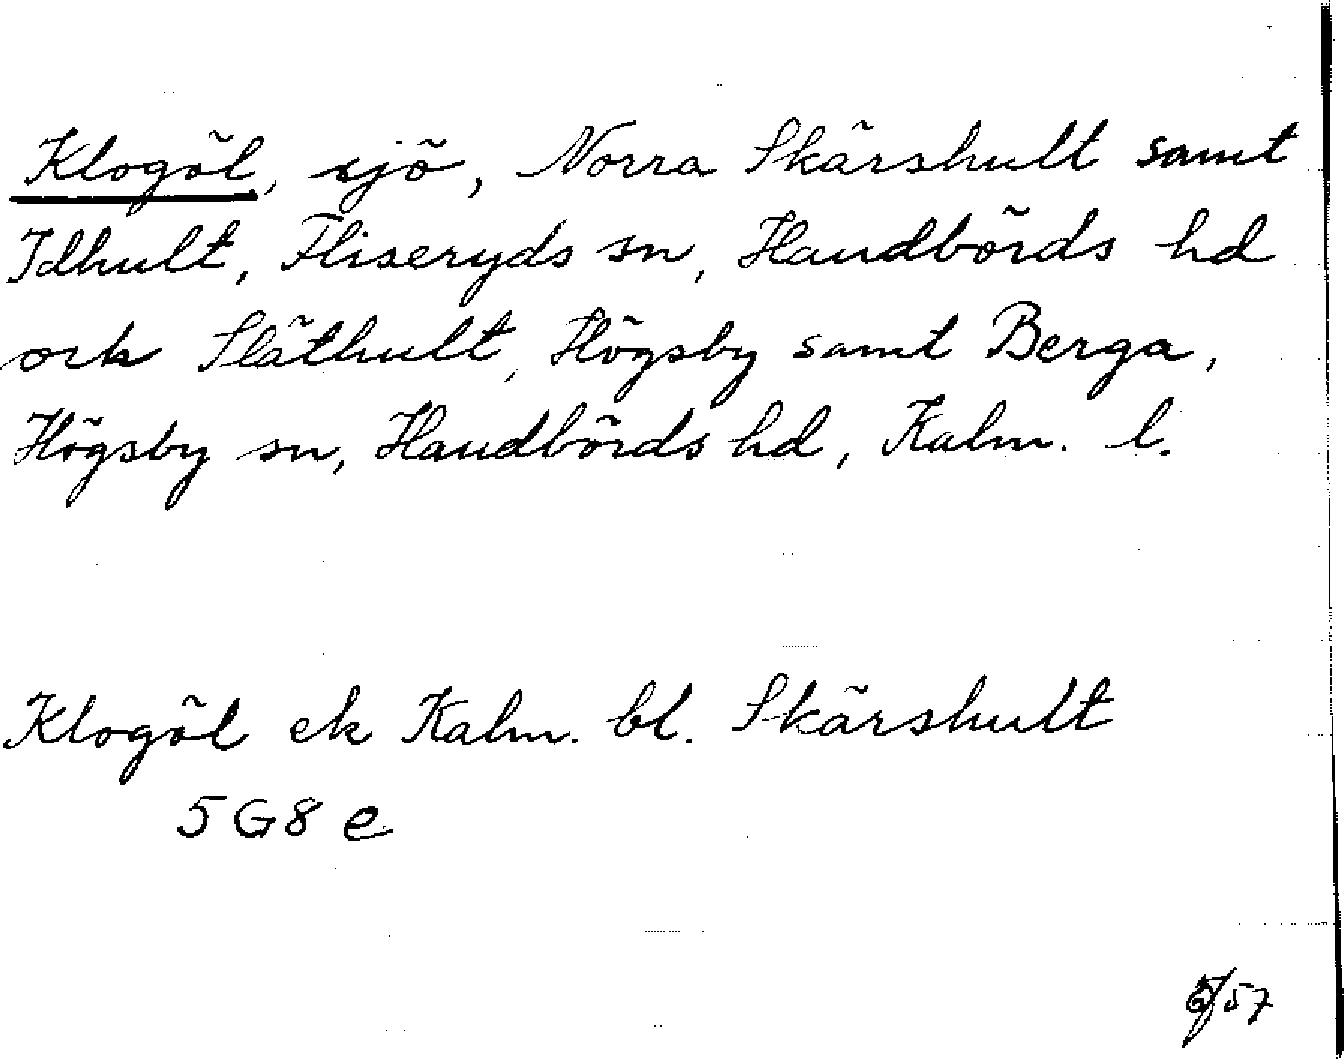 Klogöl, sjö, Norra Skärshult samt
Idhult, Fliseryds sn, Handbörds hd
och Släthult, Högsby samt Berga,
Högsby sn, Handbörds hd, Kalm. l.
Klogöl ek Kalm. bl. Skärshult
5G8e
/57